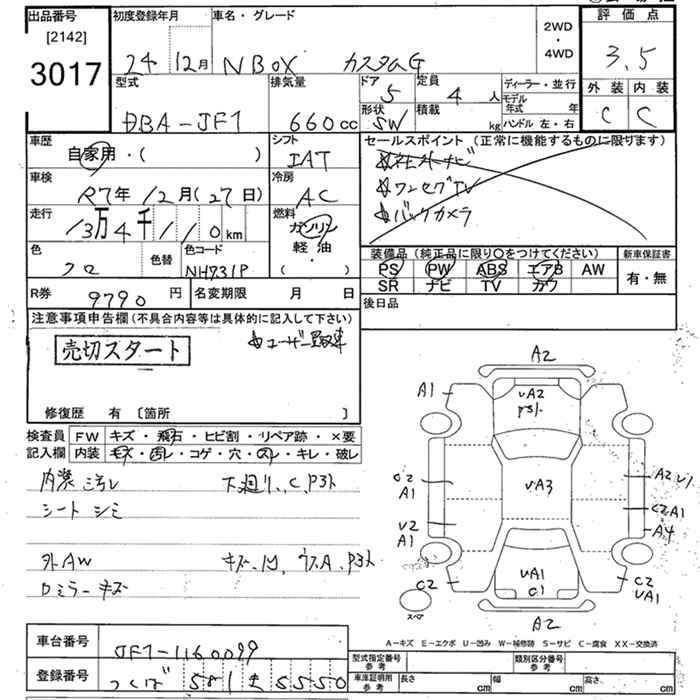 出品番号
[2142]
3017
初度登録年月
24 12月
車名・グレード
NBOX カスタムG
2WD
・
4WD
評価点
3.5
外装 内装
C C
型式
DBA-JF1
排気量
660cc
ドア
5
定員
4人
形状
SW
積載
kg
ディーラー・並行
モデル年式 年
ハンドル 左・右
車歴
自家用・( )
シフト
IAT
セールスポイント(正常に機能するものに限ります)
☆社外ナビ
☆ワンセグTV
☆バックカメラ
車検
R7年12月(27日)
冷房
AC
走行
13万4千110km
燃料
ガソリン
軽油
・( )
色
クロ
色替
色コード
NH731P
装備品(純正品に限り○をつけてください)
PS PW ABS エアB AW
SR ナビ TV カワ
新車保証書
有・無
R券 9790円
名変期限 月 日
後日品
注意事項申告欄(不具合内容等は具体的に記入して下さい)
売切スタート
☆ユーザー買取車
修復歴 有 [箇所 ]
検査員 FW キズ・飛石・ヒビ割・リペア跡・×要
記入欄 内装 キズ・凹レ・コゲ・穴・スレ・キレ・破レ
内装 ヨゴレ 下廻り、C、P3ト
シート シミ
外AW キズ、凹、ウスA、P3ト
ロミラーキズ
A2
A1
UA2
P3ト
C2
A1
UA3
A2 U1
C2 A1
A4
U2
A1
C2
UA1
C1
C2
UA1
スペア
A2
A-キズ E-エクボ U-凹み W-補修跡 S-サビ C-腐食 XX-交換済
車台番号
JF1-1160099
登録番号
つくば 581 き 5550
型式指定番号
参考
類別区分番号
参考
車庫証明用
参考
長さ cm
幅 cm
高さ cm